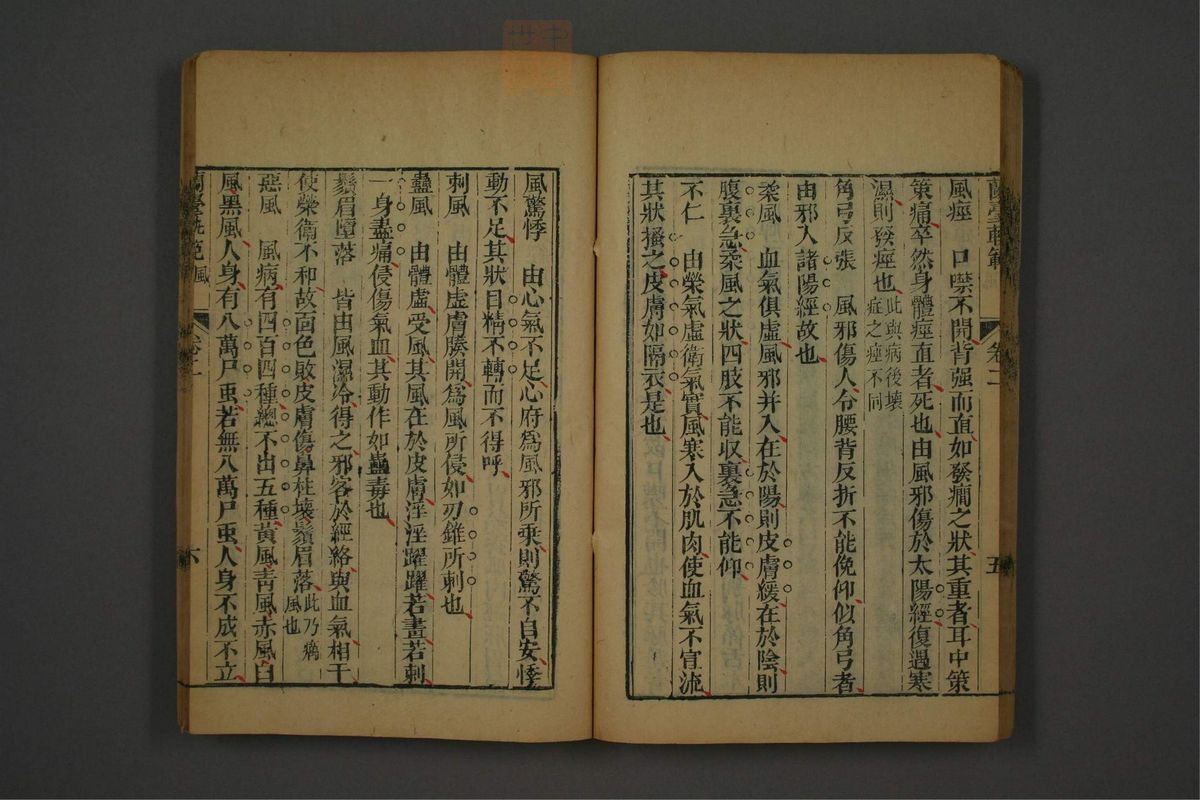 蘭臺軌範 卷二 五
風痙 口噤不開背强而直如發癎之狀其重者耳中策
策痛卒然身體痙直者死也由風邪傷於太陽經復遇寒
濕則發痙也此與病後壞
症之痙不同
角弓反張 風邪傷人令腰背反折不能俛仰似角弓者
由邪入諸陽經故也
柔風 血氣俱虛風邪并入在於陽則皮膚緩在於陰則
腹裏急柔風之狀四肢不能收裏急不能仰
不仁 由榮氣虛衛氣實風寒入於肌肉使血氣不宣流
其狀搔之皮膚如隔衣是也
風驚悸 由心氣不足心府爲風邪所乘則驚不自安悸
動不足其狀目精不轉而不得呼
刺風 由體虛膚腠開爲風所侵如刃錐所刺也
蠱風 由體虛受風其風在於皮膚淫淫躍躍若畫若刺
一身盡痛侵傷氣血其動作如蠱毒也
鬚眉墮落 皆由風濕冷得之邪客於經絡與血氣相干
使榮衛不和故面色敗皮膚傷鼻柱壞鬚眉落此乃癘
風也
惡風 風病有四百四種總不出五種黃風靑風赤風白
風黑風人身有八萬尸䖝若無八萬尸䖝人身不成不立
蘭臺軌範 風 卷二 六